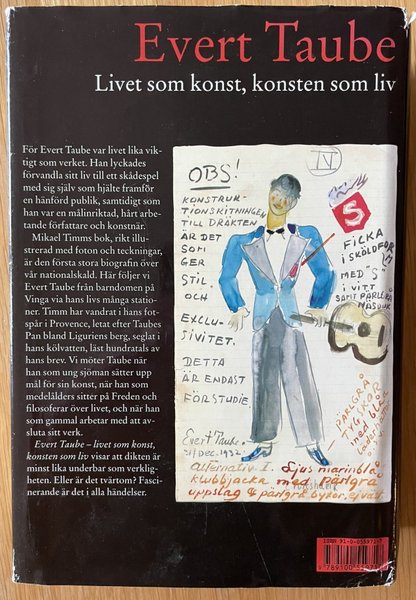 Evert Taube
Livet som konst, konsten som liv
För Evert Taube var livet lika vik-
tigt som verket. Han lyckades
förvandla sitt liv till ett skådespel
med sig själv som hjälte framför
en hänförd publik, samtidigt som
han var en målinriktad, hårt arbe-
tande författare och konstnär.
Mikael Timms bok, rikt illu-
strerad med foton och teckningar,
är den första stora biografin över
vår nationalskald. Här följer vi
Evert Taube från barndomen på
Vinga via hans livs många statio-
ner. Timm har vandrat i hans fot-
spår i Provence, letat efter Taubes
Pan bland Liguriens berg, seglat i
hans kölvatten, läst hundratals av
hans brev. Vi möter Taube när
han som ung sjöman sätter upp
mål för sin konst, när han som
medelålders sitter på Freden och
filosoferar över livet, och när han
som gammal arbetar med att av-
sluta sitt verk.
Evert Taube – livet som konst,
konsten som liv visar att dikten är
minst lika underbar som verklig-
heten. Eller är det tvärtom? Fasci-
nerande är det i alla händelser.
OBS!
KONSTRUK-
TIONSKITNINGEN
TILL DRÄKTEN
ÄR DET
SOM
GER
STIL
OCH
EXCLU-
SIVITET.
DETTA
ÄR ENDAST
FÖRSTUDIE.
Evert Taube.
31/Dec. 1932
IV
S
FICKA
I SKÖLDFORM
MED "S"
I VITT
SAMT PÄRLGRÅ
NÄSDUK
PÄRLGRÅ
BYXOR
med blå
Alternativ I. Ljus marinblå
klubbjacka med pärlgrå
uppslag & pärlgrå byxor, ej vitt
ISBN 91-0-055971-
9 789100 55971